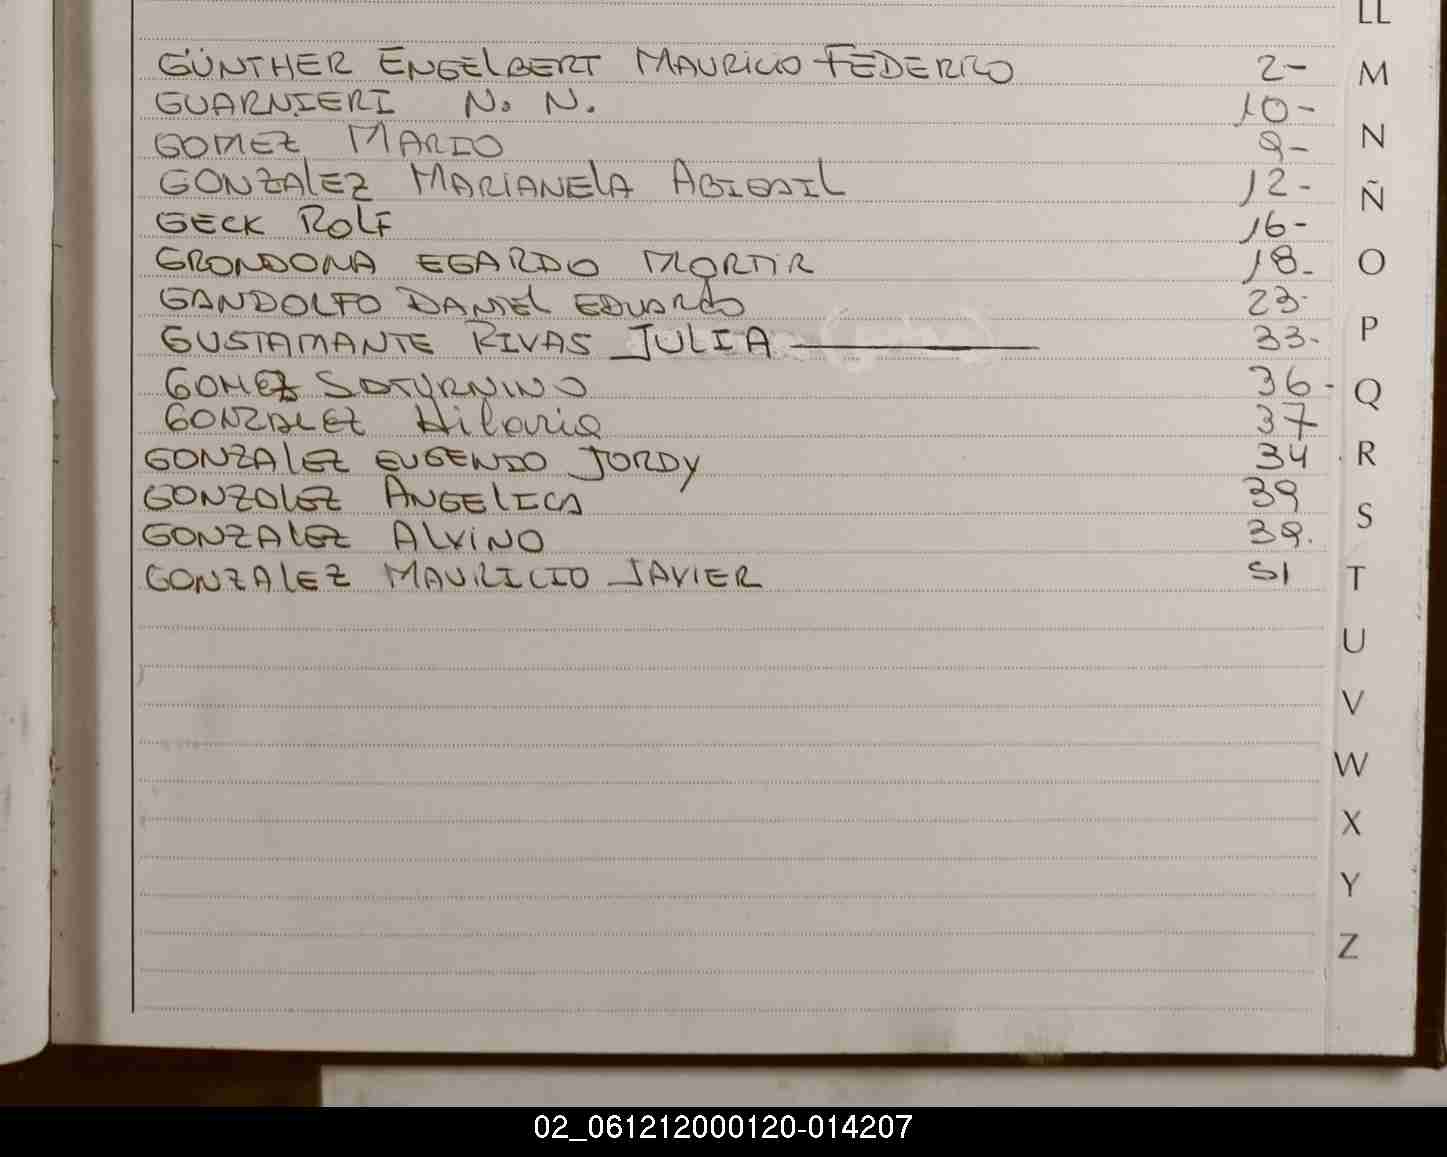 LL
GÜNTHER ENGELBERT MAURICIO FEDERICO 2-
M
GUARNIERI N. N. 10-
GOMEZ MARIO 9-
N
GONZALEZ MARIANELA ABIGAIL 12-
Ñ
GECK ROLF 16-
GRONDONA EGARDO 18-
O
GANDOLFO DANIEL EDUARDO 23-
P
GUSTAMANTE RIVAS JULIA 33-
GOMEZ SATURNINO 36-
Q
GONZALEZ Hilaria 37
GONZALEZ EUGENIO JORDY 34
R
GONZALEZ ANGELICA 39
S
GONZALEZ ALVINO 39.
GONZALEZ MAURICIO JAVIER 51
T
U
V
W
X
Y
Z
02_061212000120-014207